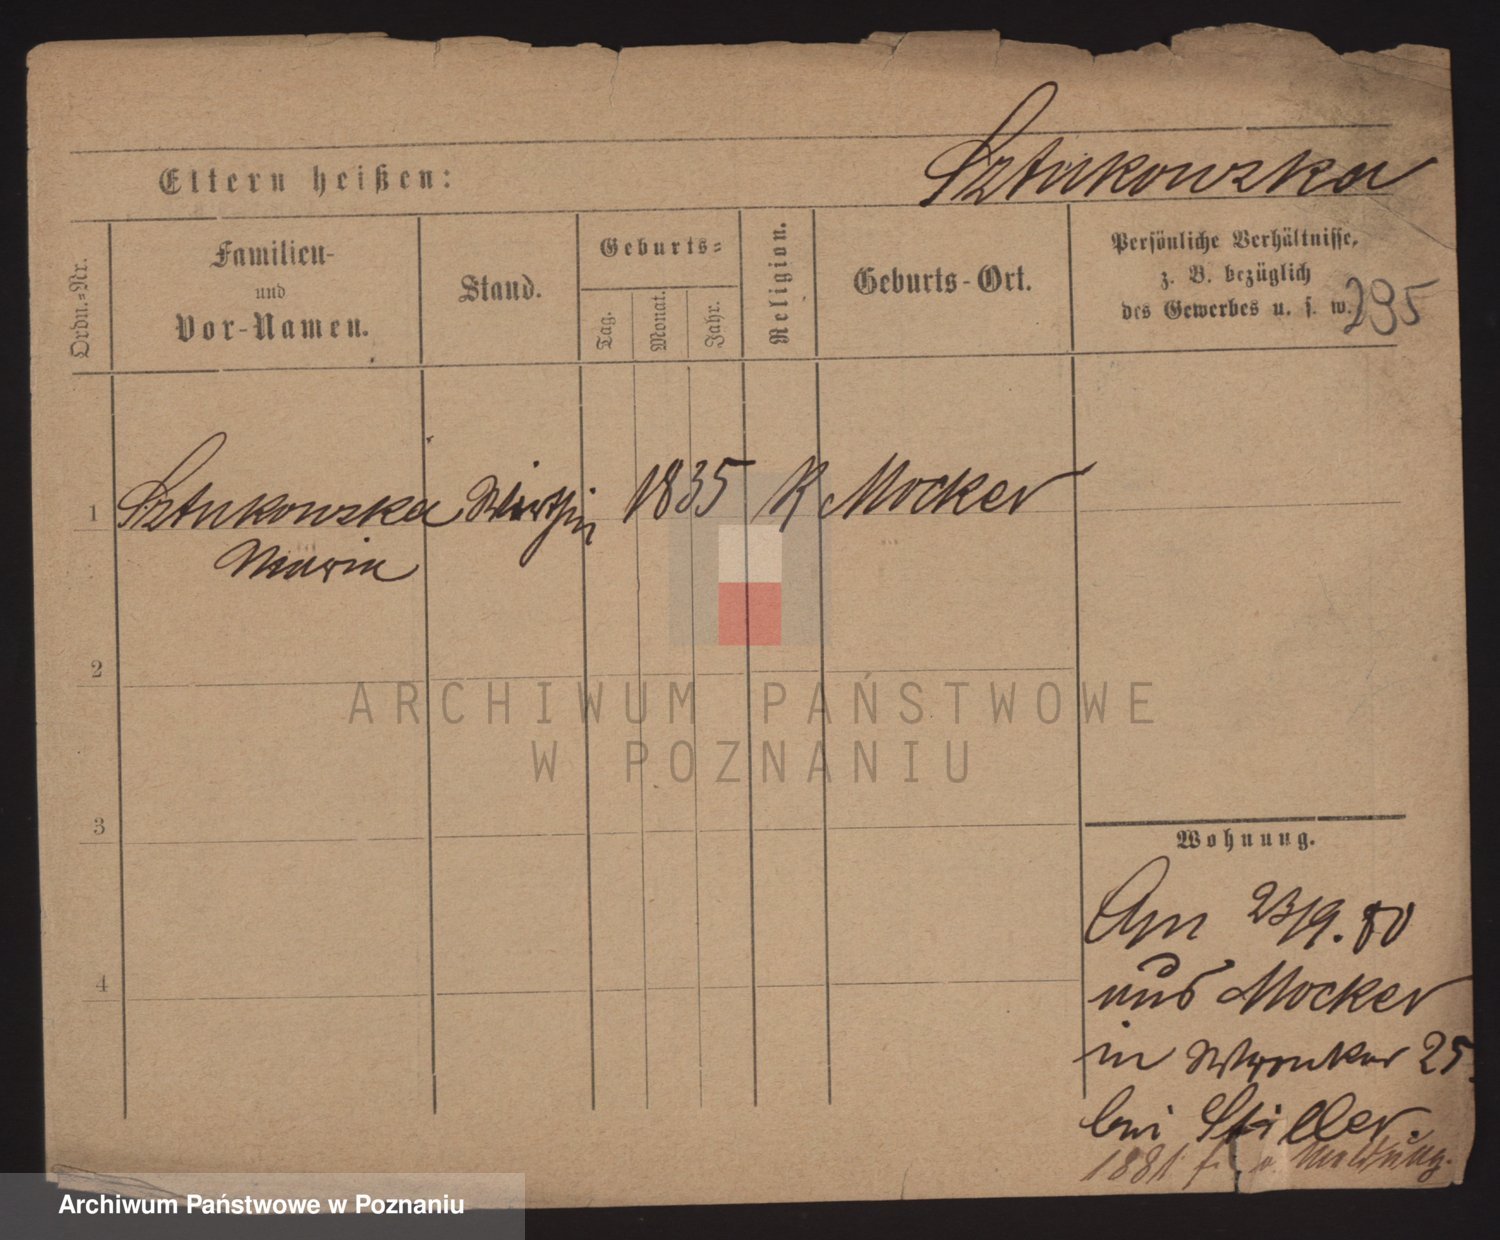 Sztukowska
Eltern heißen:
Ordn.=Nr.
Familien-
und
Vor-Namen.
Stand.
Geburts=
Tag.
Monat.
Jahr.
Religion.
Geburts-Ort.
Persönliche Verhältnisse,
z. B. bezüglich
des Gewerbes u. s. w.
295
1 Sztukowska Wirthin 1835 K Mocker
Maria
2
3
4
Wohnung.
An 23/9. 80
aus Mocker
in Wronker 25
bei Stiller.
1881 f. o. Meldung.
ARCHIWUM PAŃSTWOWE
W POZNANIU
Archiwum Państwowe w Poznaniu